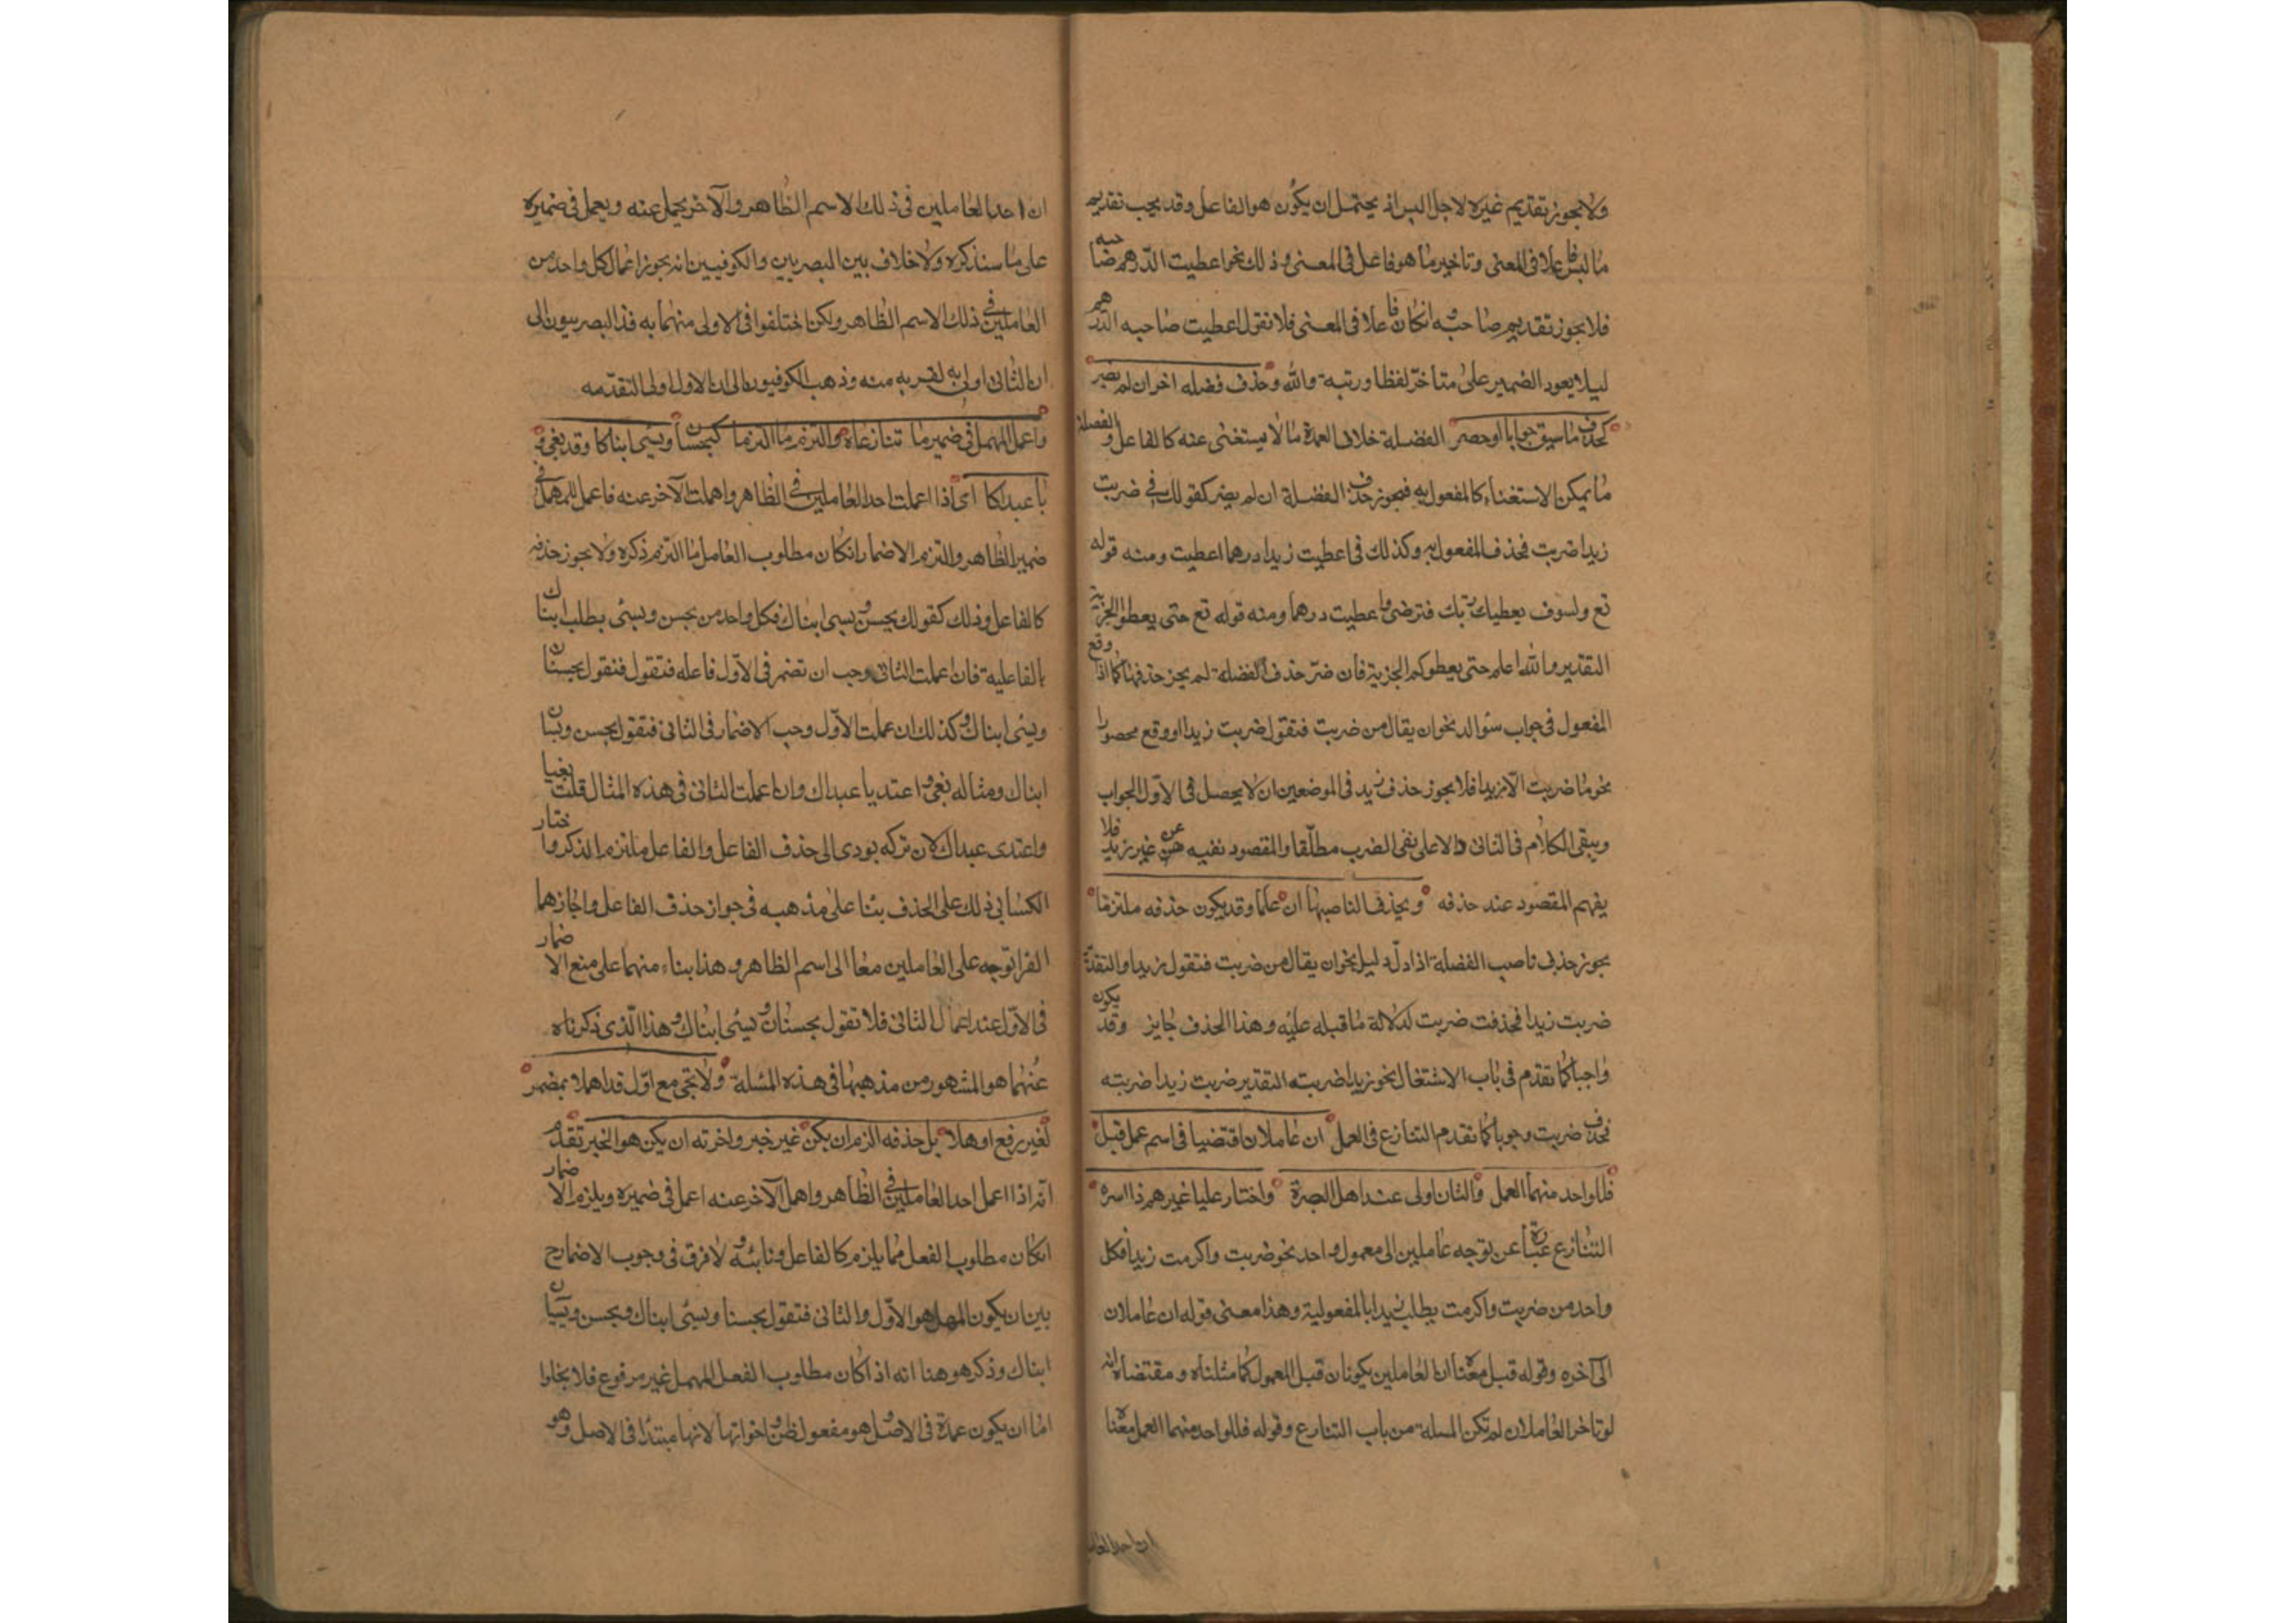 ولا يجوز تقديم غيره لاجل البس اذ يحتمل ان يكون هو الفاعل وقد يجب تقديم
ما ليس فاعلا فى المعنى وتاخير ما هو فاعل فى المعنى وذلك نحو اعطيت الدّرهم صاحبه
فلا يجوز تقديم صاحبه وانكان فاعلا فى المعنى فلا تقول اعطيت صاحبه الدرهم
ليلا يعود الضمير على متاخّر لفظا ورتبة والله وحذف فضله اخران لم يضر
كحذف ما سيق جوابا او حصر الفضلة خلاف العمدة ما لا يستغنى عنه كالفاعل والفضلة
ما يمكن الاستغناء كالمفعول به فيجوز حذف الفضلة ان لم يضر كقولك فى ضربت
زيدا ضربت فحذف المفعول به وكذلك فى اعطيت زيدا درهما اعطيت ومنه قوله
تع ولسوف يعطيك ربّك فترضى واعطيت درهما ومنه قوله تع حتى يعطوا الجزية
التقدير والله اعلم حتى يعطوكم الجزية فان ضرّ حذف الفضلة لم يجز حذفها كما اذا وقع
المفعول فى جواب سئوال نحو ان يقال من ضربت فتقول ضربت زيدا او وقع محصورا
نحو ما ضربت الّا زيدا فلا يجوز حذف زيد فى الموضعين ان لا يحصل فى الاوّل الجواب
ويبقى الكلام فى الثانى دالا على نفى الضرب مطلّقا والمقصود نفيه عن غير زيد فلا
يفهم المقصود عند حذفه ويحذف الناصبها ان علما وقد يكون حذفه ملتزما
يجوز حذف ناصب الفضلة اذا دلّ دليل نحو ان يقال من ضربت فتقول زيدا والتقدير
ضربت زيدا فحذفت ضربت لدلالة ما قبله عليه وهذا الحذف جايز وقد يكون
واجبا كما تقدم فى باب الاشتغال نحو زيدا ضربته التقدير ضربت زيدا ضربته
فحذف ضربت وجوبا كما تقدم التنازع فى العمل ان عاملان اقتضيا فى اسم عمل قبل
فللواحد منهما العمل والثان اولى عند اهل البصرة واختار عليا غيرهم ذا اسره
التنازع عبارة عن توجه عاملين الى معمول واحد نحو ضربت واكرمت زيدا فكل
واحد من ضربت واكرمت يطلب زيدا بالمفعولية وهذا معنى قوله ان عاملان
الى آخره وقوله قبل معناه ان العاملين يكونان قبل المعمول كما مثلناه ومقتضاه انه
لو تاخر العاملان لم تكن المسلة من باب التنازع وقوله فللواحد منهما العمل معناه
ان احد العاملين
ان احد العاملين فى ذلك الاسم الظاهر والآخر يحمل عنه ويعمل فى ضميره
على ما سنذكره ولا خلاف بين البصريين والكوفيين انه يجوز اعمال كل واحد من
العاملين فى ذلك الاسم الظاهر ولكن اختلفوا فى الاولى منهما به فذ البصريون الى
ان الثانى اولى به لقربه منه وذهب الكوفيون الى ان الاول اولى لتقدّمه
واعمل المهمل فى ضمير ما تنازعاه والتزم ما التزما كيحسنان ويسئ ابناكا وقد بغى و
يا عبداكا اى اذا اعملت احد العاملين فى الظاهر واهملت الآخر عنه فاعمل المهمل فى
ضمير الظاهر والتزم الاضمار انكان مطلوب العامل ما التزم ذكره ولا يجوز حذفه
كالفاعل وذلك كقولك يحسن ويسئ ابناك فكل واحد من يحسن ويسئ يطلب ابناك
بالفاعلية فان اعملت الثانى وجب ان تضمر فى الاوّل فاعله فتقول فتقول يحسنان
ويسئ ابناك وكذلك ان عملت الاوّل وجب الاضمار فى الثانى فتقول يحسن ويسئان
ابناك ومثاله بغى واعتديا عبداك وان اعملت الثانى فى هذه المثال قلت بغيا
واعتدى عبداك لان تركه يودى الى حذف الفاعل والفاعل ملتزم الذكر واختار
الكسائى ذلك على الحذف بناء على مذهبه فى جواز حذف الفاعل واجازهما
الفرا توجه على العاملين معا الى اسم الظاهر وهذا بناء منهما على منع الاضمار
فى الاوّل عند اعمال الثانى فلا تقول يحسنان ويسئ ابناك وهذا الّذى ذكرناه
عنهما هو المشهور من مذهبهما فى هذه المسئلة ولا تجئ مع اوّل قد اهملا بمضمر
لغير رفع اوهلا بل حذفه الزم ان يكن غير خبر واخرته ان يكن هو الخبر تقدم
انّه اذا اعمل احد العاملين فى الظاهر واهمل الآخر عنه اعمل فى ضميره ويلزم الاضمار
انكان مطلوب الفعل مما يلزم كالفاعل ونائبه ولا فرق فى وجوب الاضمار ح
بين ان يكون المهمل هو الاوّل والثانى فتقول يحسنا ويسئ ابناك ويحسن ويسيئان
ابناك وذكر هوهنا انه اذا كان مطلوب الفعل المهمل غير مرفوع فلا يخلوا
امّا ان يكون عمدة فى الاصل وهو مفعول ظن واخواتها لانها مبتدا فى الاصل وهو